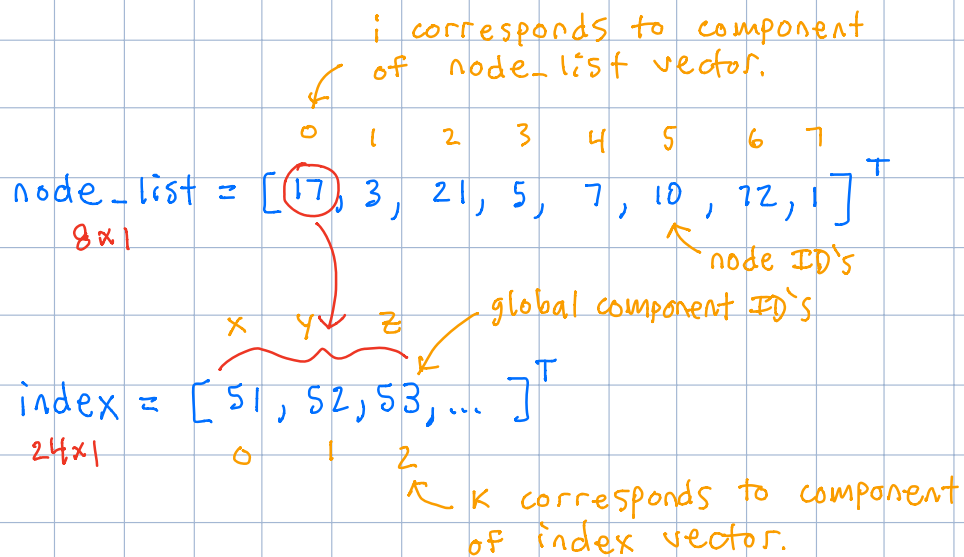 i corresponds to component
of node_list vector.
0 1 2 3 4 5 6 7
node_list = [17, 3, 21, 5, 7, 10, 12, 1]ᵀ
8x1
node ID's
global component ID's
X Y Z
index = [51, 52, 53, ... ]ᵀ
24x1
0 1 2
K corresponds to component
of index vector.